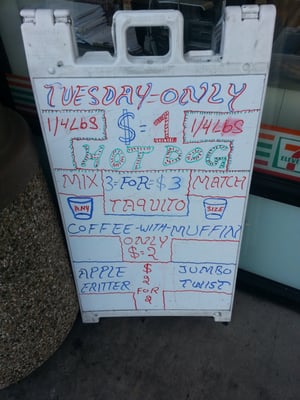 TUESDAY-ONLY
1/4LBS $=1 1/4LBS
HOT DOG
MIX 3=FOR=$3 MATCH
TAQUITO
ANY SIZE
COFFEE-WITH-MUFFIN
ONLY
$=2
APPLE FRITTER $2 FOR 2 JUMBO TWIST
ELEVEN